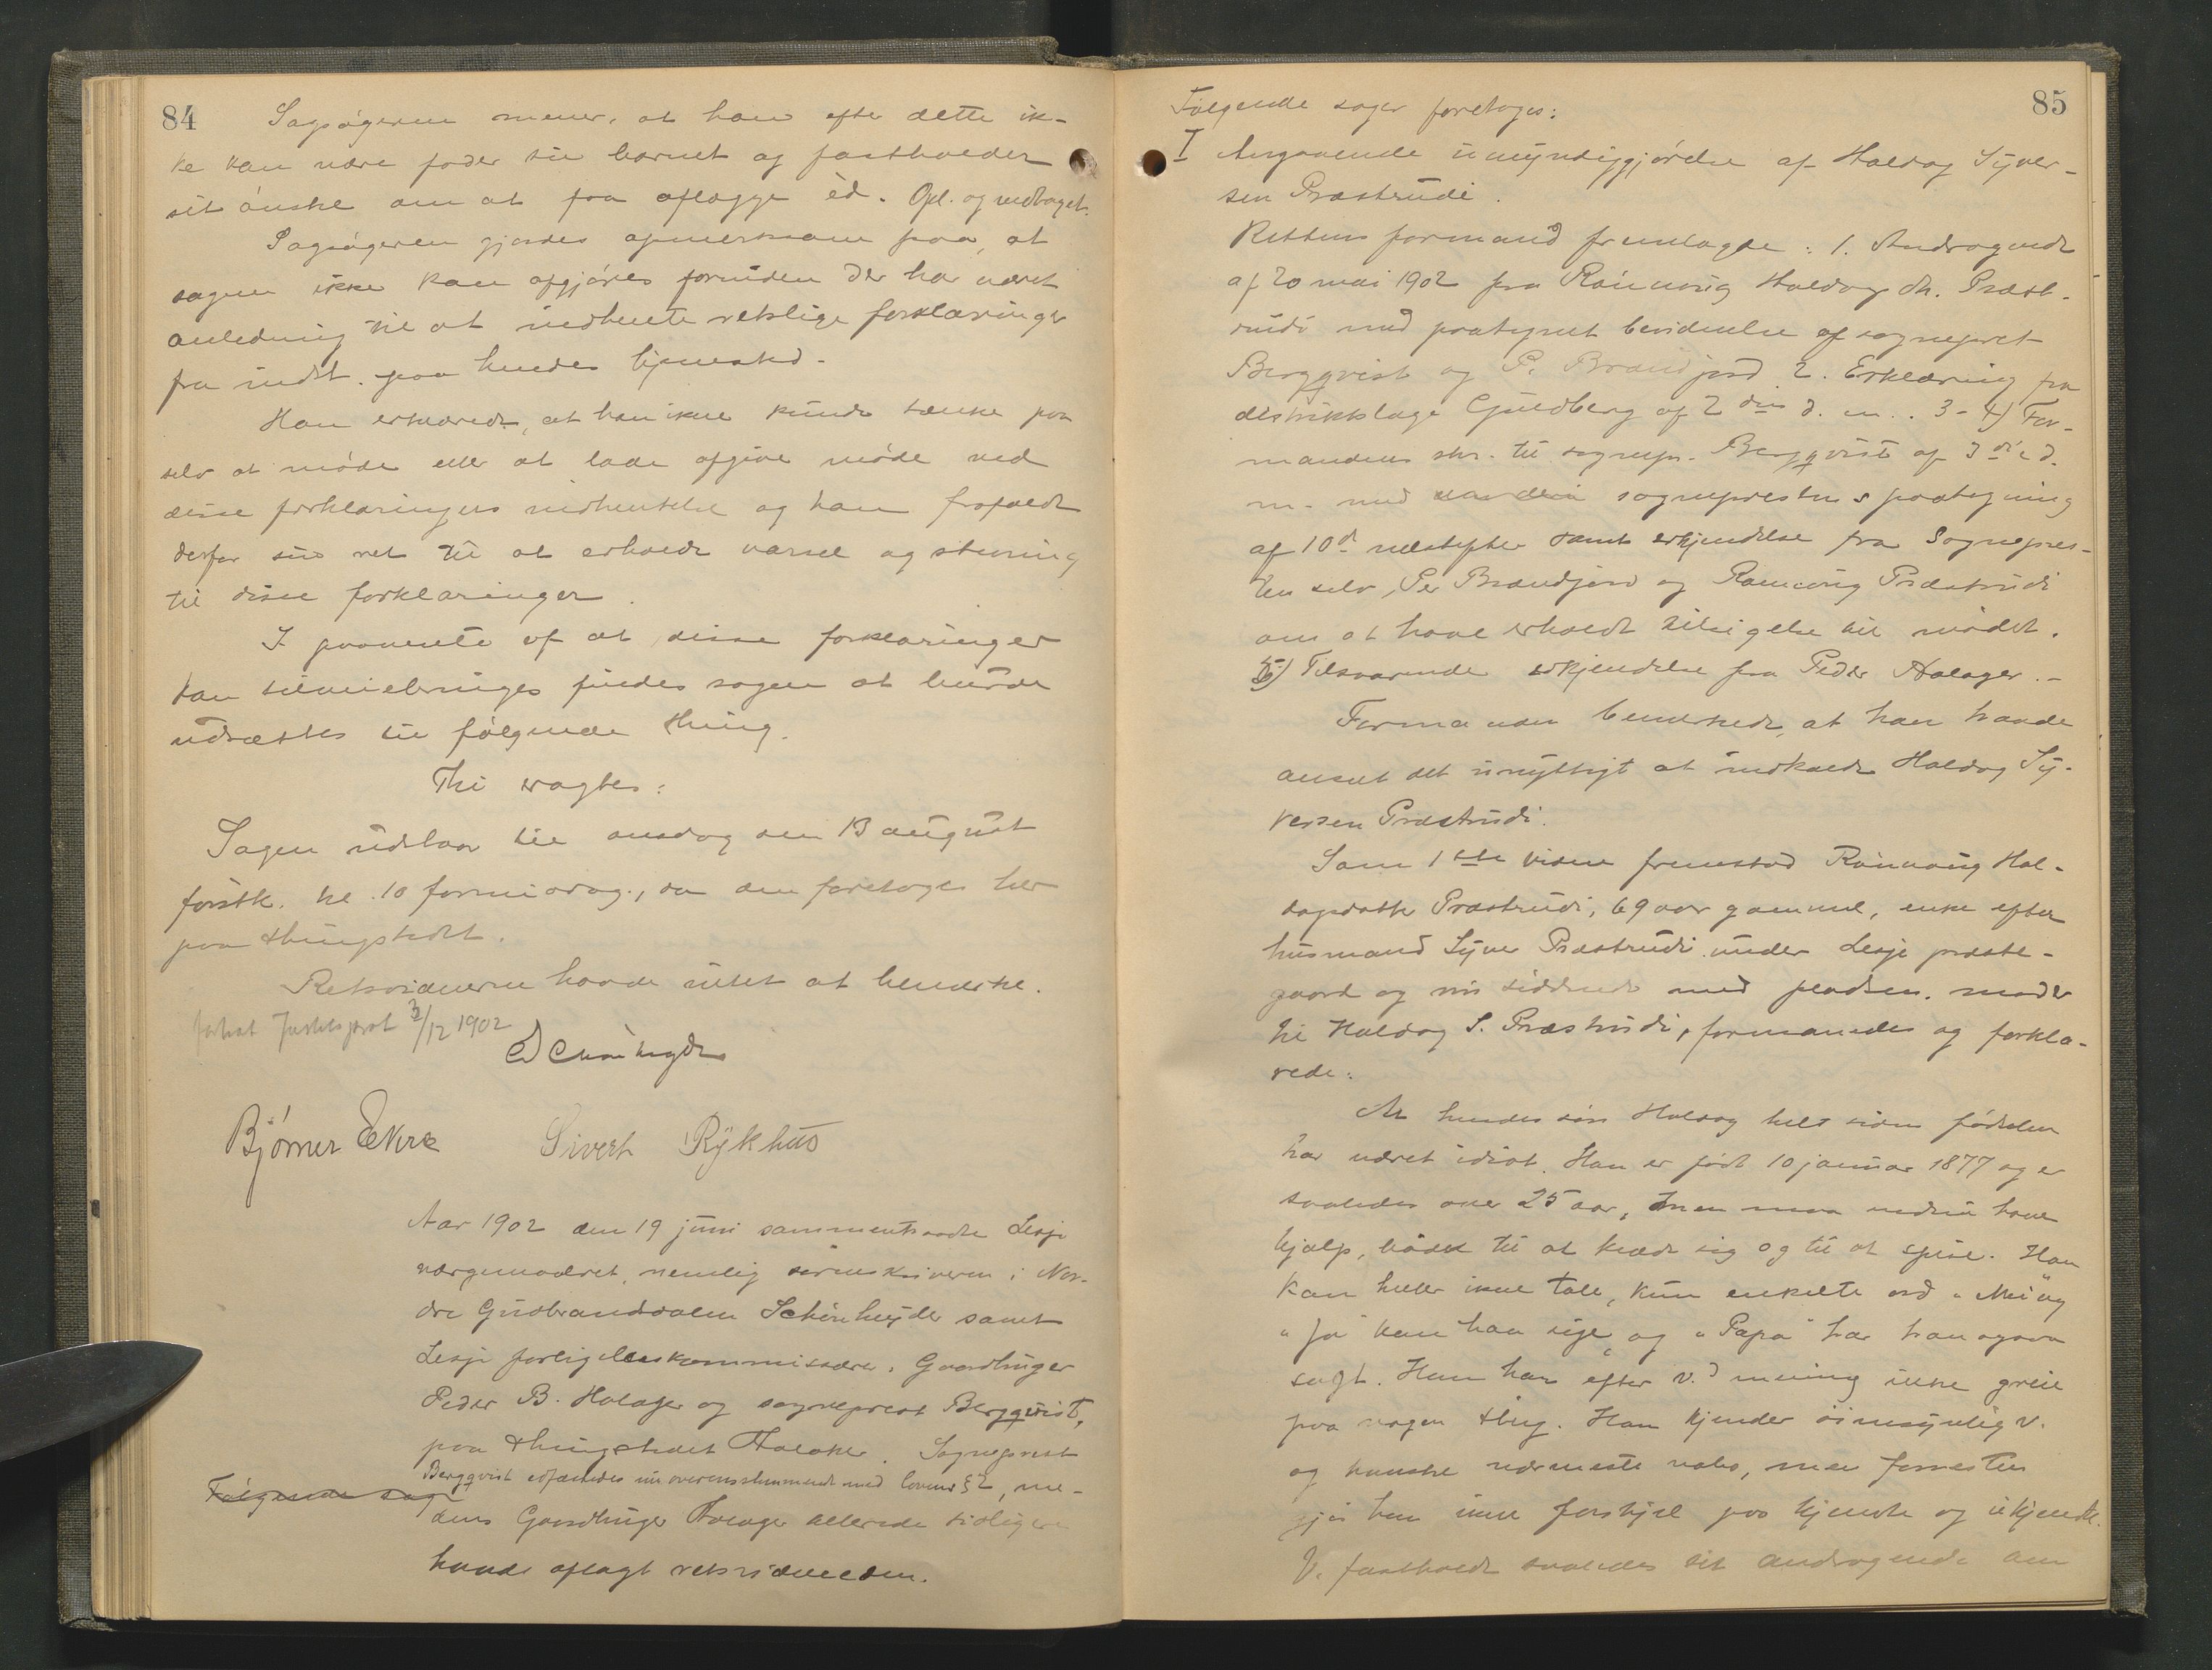 84
Sagsøgeren mener, at han efter dette ik-
ke kan være fader til barnet og fastholder
sit ønske om at faa aflægge ed. Opl. og vedtaget.
Sagsøgeren gjordes opmerksom paa, at
sagen ikke kan afgjøres forinden der har været
anledning til at indhente retslige forklaringer
fra indst. paa hendes hjemsted.
Han erklærede, at han ikke kunde tænke paa
selv at møde eller at lade afgive møde ved
disse forklaringers indhentelse og han frafaldt
derfor sin ret til at erholde varsel og stevning
til disse forklaringer.
I paavente af at disse forklaringer
kan tilveiebringes findes sagen at burde
udsættes til følgende thing.
Thi vagtes:
Sagen udstaar til onsdag den 13 august
førstk. kl. 10 formiddag, da den foretages her
paa thingstedet.
Retsvidnerne havde intet at bemerke.
3/12 1902
Schønheyder
Bjørner Ekre Sivert Rykhus
Aar 1902 den 19 juni sammentraadte Lesje
værgemaadret, nemlig sorenskriveren i Nor-
dre Gudbrandsdalen Schönheyder samt
Lesje forligelseskommissærer, Gaardbruger
Peder B. Holager og sogneprest Bergqvist,
paa thingstedet Holaker. Sogneprest
Bergqvist edfæstedes nu overensstemmende med lovens § 2, me-
Følgende sag
dens Gaardbruger Holager allerede tidligere
havde aflagt retsvidneeden.
85
Følgende sager foretoges:
I Angaaende umyndiggjørelse af Haldog Syver-
sen Præstrudi.
Rettens formand fremlagde: 1. Andragende
af 20 mai 1902 fra Rønnaug Haldogsdtr. Præst-
rudi med paategnet bevidnelse af sogneprest
Bergqvist og P. Brandjord 2. Erklæring fra
distriktslæge Guldberg af 2den d. m. . 3-4) For-
mandens skr. til sognepr. Bergqvist af 3die d.
m. med sogneprestens paategning
af 10de næstefter samt erkjendelse fra Sognepres-
ten selv, Per Brandjord og Rønnaug Præstrudi
om at have erholdt tilsigelse til mødet.
5) Tilsvarende erkjendelse fra Peder Holager. -
Formanden bemerkede, at han havde
anseet det unyttigt at indkalde Haldog Sy-
versen Præstrudi.
Som 1ste vidne fremstod Rønnaug Hal-
dogsdatter Præstrudi, 69 aar gammel, enke efter
husmand Syver Præstrudi under Lesje præste-
gaard og nu siddende med pladsen, moder
til Haldog S. Præstrudi, formanedes og forkla-
rede:
At hendes søn Haldog helt siden fødselen
har været idiot. Han er født 10 januar 1877 og er
saaledes over 25 aar, men maa endnu have
hjælp, baade til at klæde sig og til at spise. Han
kan heller ikke tale, kun enkelte ord "Mei" og
"Ja" kan han sige, og "Papa" har han ogsaa
sagt. Han har efter v.s mening ikke greie
paa nogen thing. Han kjender øiensynlig v.
og kanske nærmeste nabo, men forresten
gjør han ikke forskjel paa kjendte og ukjendte.
V. fastholdt saaledes sit andragende om